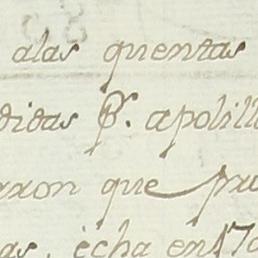 alas quentas
didas Pr. apolill
rron que pu
as. echa en 170